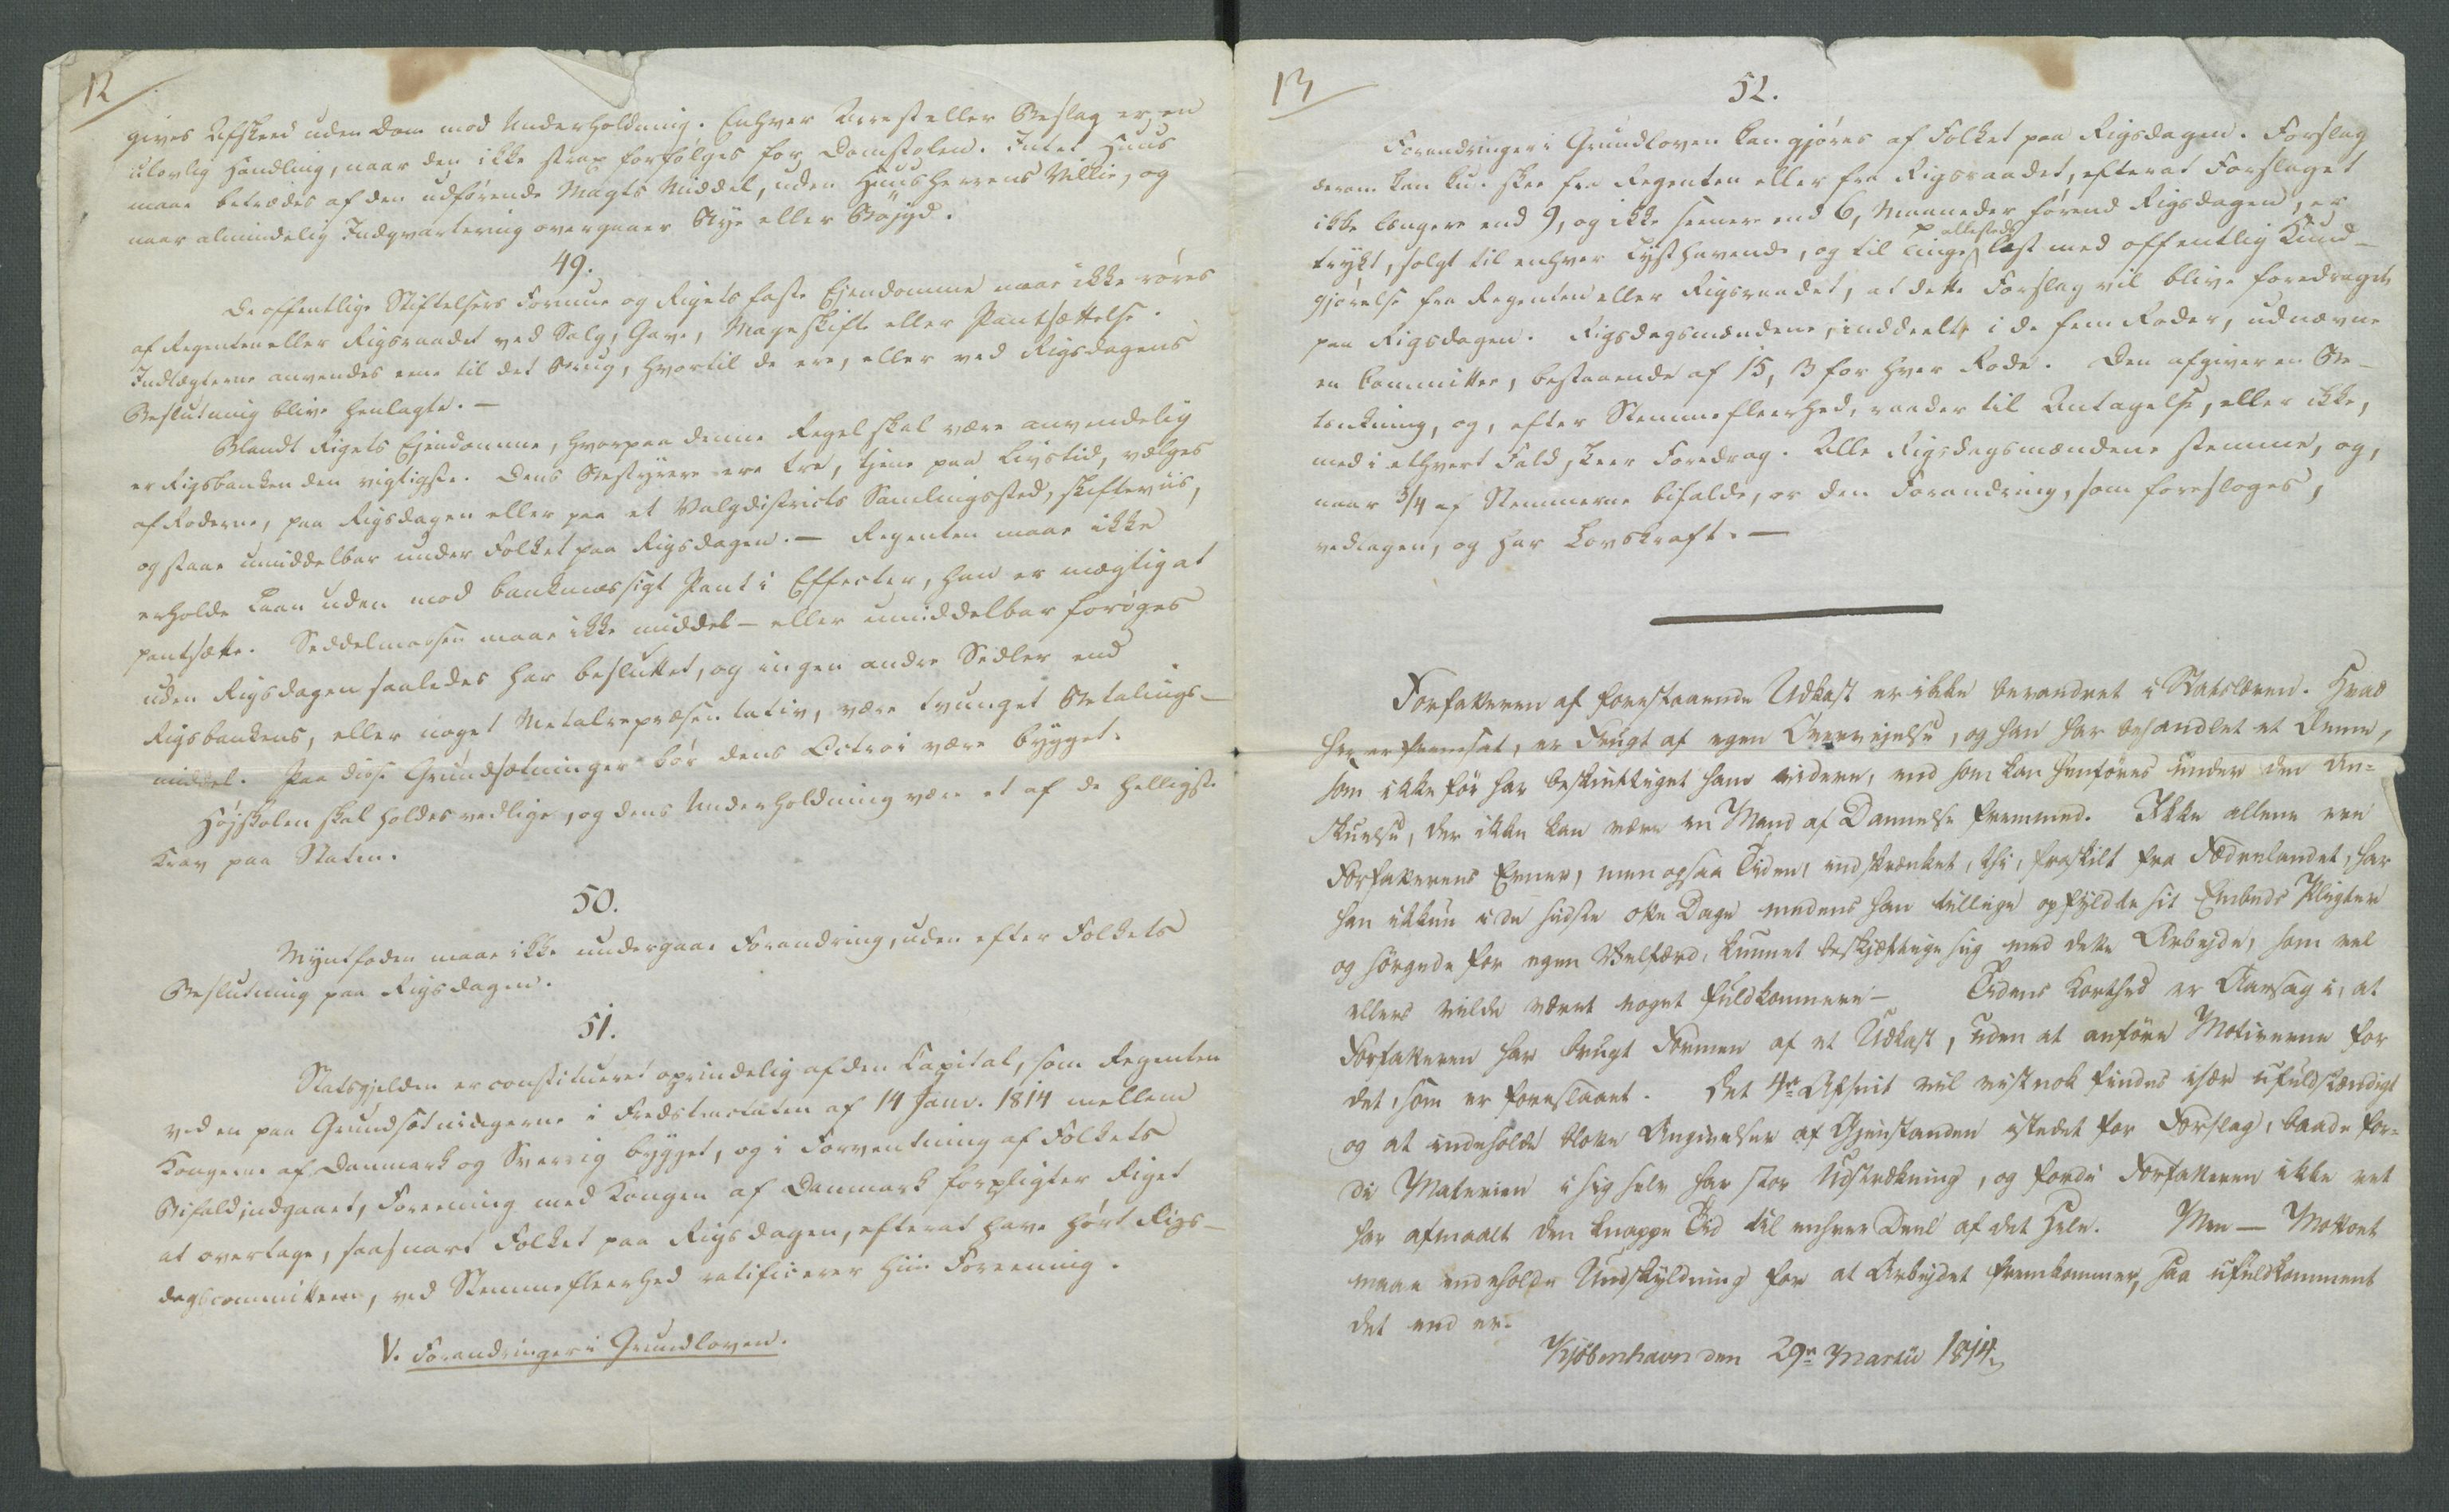 12
gives Afskeed uden Dom mod Underholdning. Enhver Arrest eller Beslag er en
ulovlig Handling, naar den ikke strax forfølges for Domstolen. Intet Huus
maae betrædes af den udførende Magts Middel, uden Huusherrens Villie, og
naar almindelig Indqvartering overgaaer Bye eller Bøjgd.
49.
De offentlige Stiftelsers Formue og Rigets faste Ejendomme maae ikke røres
af Regenten eller Rigsraadet ved Salg, Gave, Mageskifte eller Pantsættelse.
Indtægterne anvendes ene til det Brug, hvortil de ere, eller ved Rigsdagens
Beslutning blive henlagte. —
Blandt Rigets Ejendomme, hvorpaa denne Regel skal være anvendelig
er Rigsbanken den vigtigste. Dens Bestyrere ere tre, tjene paa Livstid, vælges
af Roderne, paa Rigsdagen eller paa et Valgdistricts Samlingssted, skifteviis,
og staae umiddelbar under Folket paa Rigsdagen. — Regenten maae ikke
erholde Laan uden mod bankmæssigt Pant i Effecter, han er mægtig at
pantsætte. Seddelmassen maae ikke middel- eller umiddelbar forøges
uden Rigsdagen saaledes har besluttet, og ingen andre Sedler end
Rigsbankens, eller noget Metalrepræsentativ, være tvunget Betalings-
middel. Paa disse Grundsætninger bør dens Octroi være bygget.
Højskolen skal holdes vedlige, og dens Underholdning være et af de helligste
Krav paa Staten.
50.
Myntfoden maae ikke undergaae Forandring, uden efter Folkets
Beslutning paa Rigsdagen.
51.
Statsgjelden er constitueret oprindelig af den Capital, som Regenten
ved en paa Grundsætningerne i Fredstractaten af 14 Janv. 1814 mellem
Kongerne af Danmark og Sverrig bygget, og i Forventning af Folkets
Bifald, indgaaet, Foreening med Kongen af Danmark forpligter Riget
at overtage, saasnart Folket paa Rigsdagen, efterat have hørt Rigs-
dagscommitteen, ved Stemmefleerhed ratificerer hiin Foreening.
V. Forandringer i Grundloven.
13
52.
Forandringer i Grundloven kan gjøres af Folket paa Rigsdagen. Forslag
derom kan kun skee fra Regenten eller fra Rigsraadet, efterat Forslaget
ikke længere end 9, og ikke seenere end 6, Maaneder førend Rigsdagen, er
trykt, solgt til enhver Lysthavende, og til Tinge allesteds læst med offentlig Kund-
gjørelse fra Regenten eller Rigsraadet, at dette Forslag vil blive foredraget
paa Rigsdagen. Rigsdagsmændene, inddeelte i de fem Roder, udnævne
en Committee, bestaaende af 15, 3 for hver Rode. Den afgiver en Be-
tænkning, og, efter Stemmefleerhed, raader til Antagelse, eller ikke,
med i ethvert Fald, skeer Foredrag. Alle Rigsdagsmændene stemme, og,
naar 3/4 af Stemmerne bifalde, er den Forandring, som foresloges,
vedtagen, og har Lovskraft. —
Forfatteren af forestaaende Udkast er ikke bevandret i Statslæren. Hvad
her er fremsat, er Frugt af egen Overvejelse, og han har behandlet et Emne,
som ikke før har beskjæftiget ham videre, end som kan henføres under den An=
skuelse, der ikke kan være en Mand af Dannelse fremmed. Ikke allene ere
Forfatterens Evner, men ogsaa Tiden, indskrænket, thi, fraskilt fra Fædrelandet, har
han ikkun i de sidste otte Dage medens han tillige opfyldte sit Embeds Pligter
og sørgede for egen Velfærd, kunnet beskjæftige sig med dette Arbejde, som vel
ellers vilde været noget fuldkomnere — Tidens Korthed er Aarsag i, at
Forfatteren har brugt Formen af et Udkast, uden at anføre Motiverne for
det, som er foreslaaet. Det 4de Afsnit vil vistnok findes især ufuldstændigt
og at indeholde blotte Angivelser af Gjenstanden istedet for Forslag, baade for=
di Materien i sig selv har stor Udstrækning, og fordi Forfatteren ikke ret
har afmaalt den knappe Tid til enhver Deel af det Hele. Men — Mottoet
maae indeholde Undskyldning for at Arbejdet fremkommer, saa ufuldkomment
det end er.
Kjöbenhavn den 29de Martii 1814